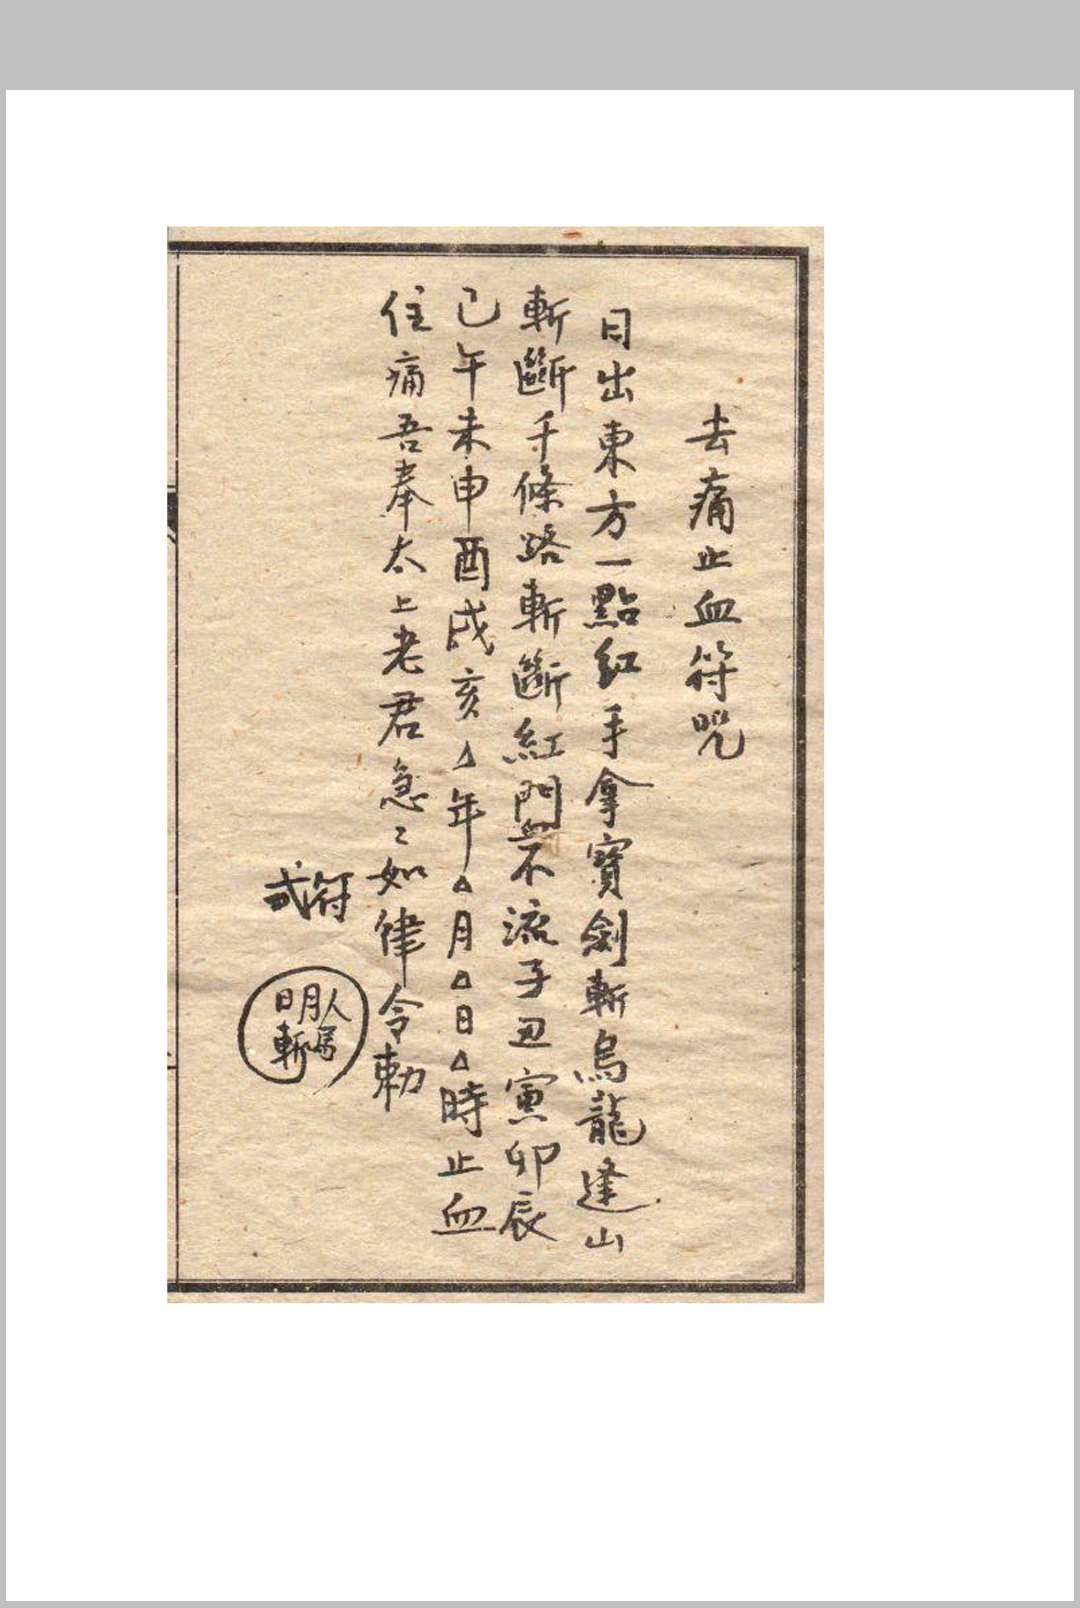 去痛止血符咒
日出東方一點紅手拿寶劍斬烏龍逢山
斬斷千條路斬斷紅門血不流子丑寅卯辰
巳午未申酉戌亥△年△月△日△時止血
住痛吾奉太上老君急〻如律令勅
符式
人月日
斬